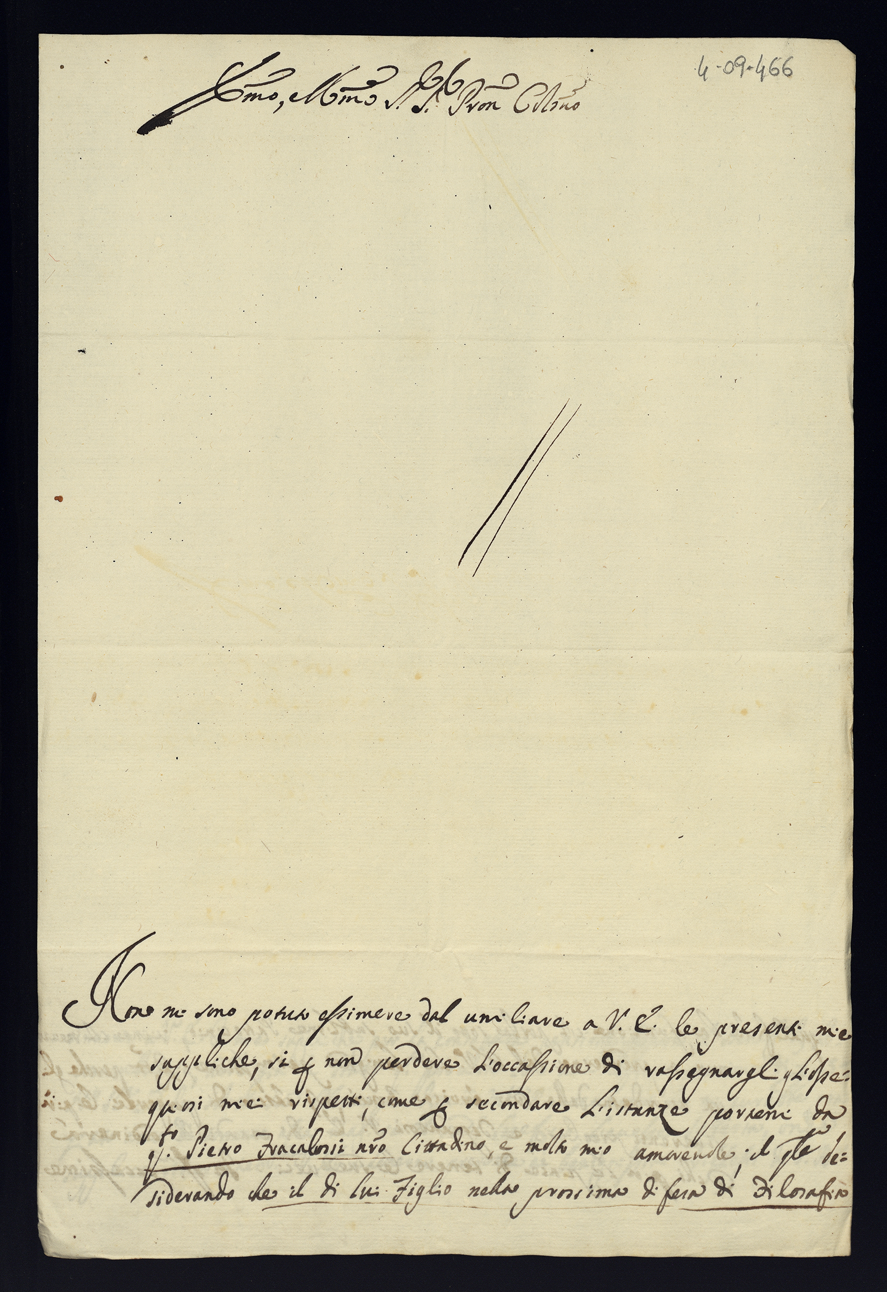 4-09-466
Non mi sono potuto essimere dal umiliare a V. E. le presenti mie
suppliche, sì p non perdere l'occassione di rassegnargli gl'osse=
quiosi miei rispetti, come p secondare l'istanze portemi da
qto. Pietro Fracalossi nro Cittadino, e molto mio amorevole; il qle de=
siderando che il di lui Figlio nella prossima difesa di Filosafia